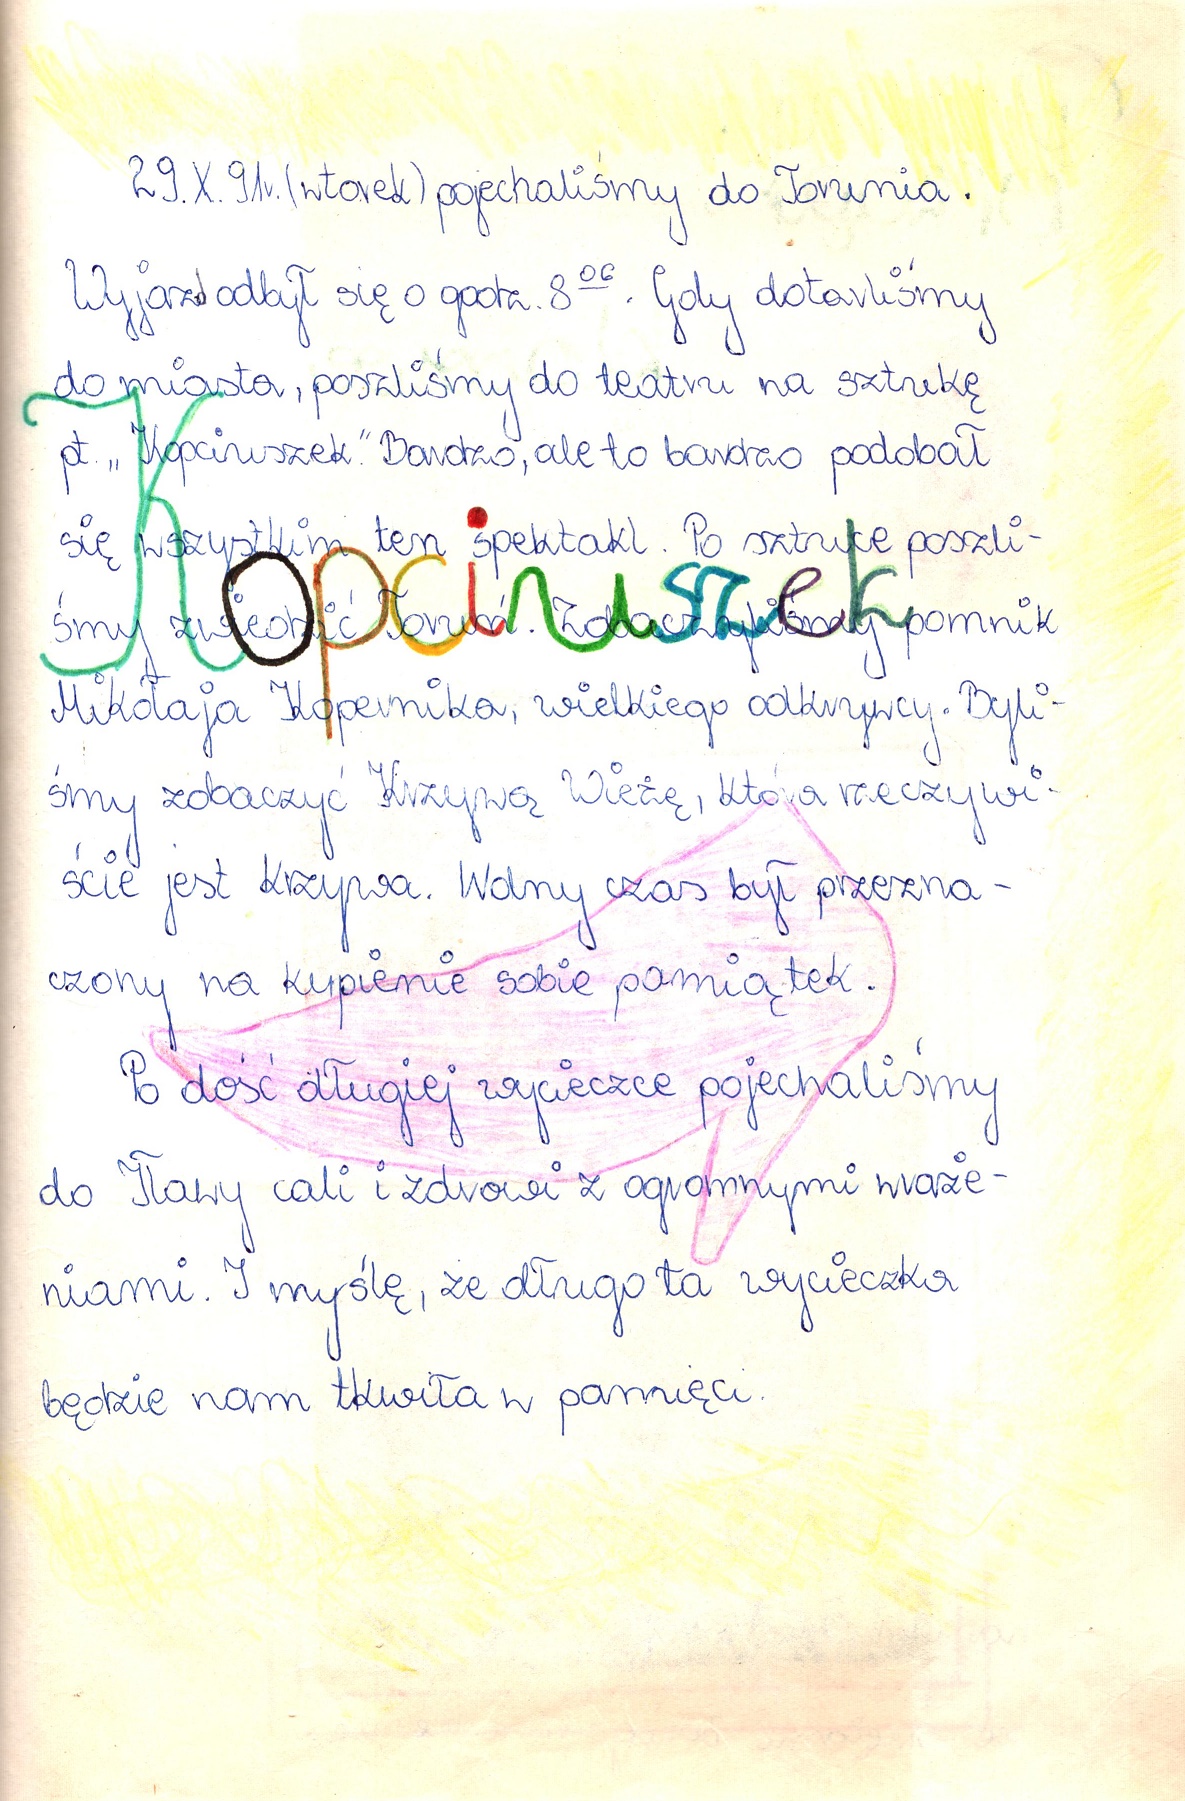 29.X.91r. (wtorek) pojechaliśmy do Torunia.
Wyjazd odbył się o godz. 8 06. Gdy dotarliśmy
do miasta, poszliśmy do teatru na sztukę
pt. „Kopciuszek." Bardzo, ale to bardzo podobał
się wszystkim ten spektakl. Po sztuce poszli-
śmy zwiedzić Toruń. Zobaczyliśmy pomnik
Kopciuszek
Mikołaja Kopernika, wielkiego odkrywcy. Byli-
śmy zobaczyć Krzywą Wieżę, która rzeczywi-
ście jest krzywa. Wolny czas był przezna-
czony na kupienie sobie pamiątek.
Po dość długiej wycieczce pojechaliśmy
do Iławy cali i zdrowi z ogromnymi wraże-
niami. I myślę, że długo ta wycieczka
będzie nam tkwiła w pamięci.